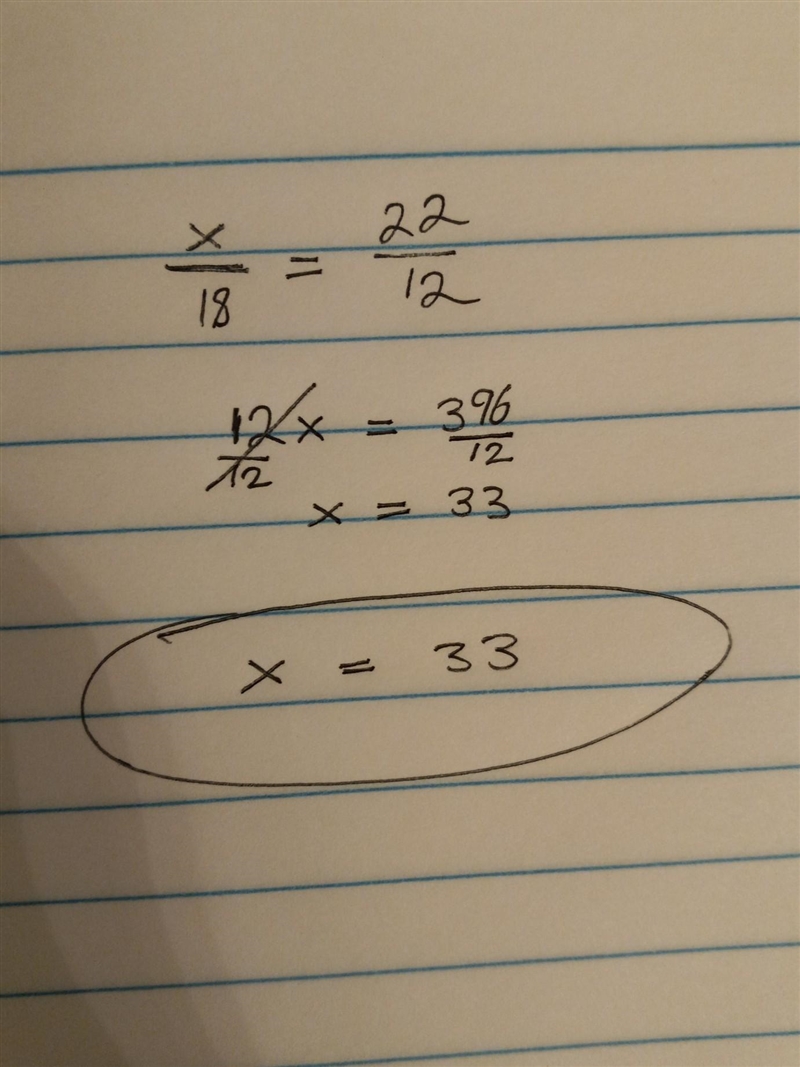 x/18 = 22/12
12x/12 = 396/12
x = 33
x = 33